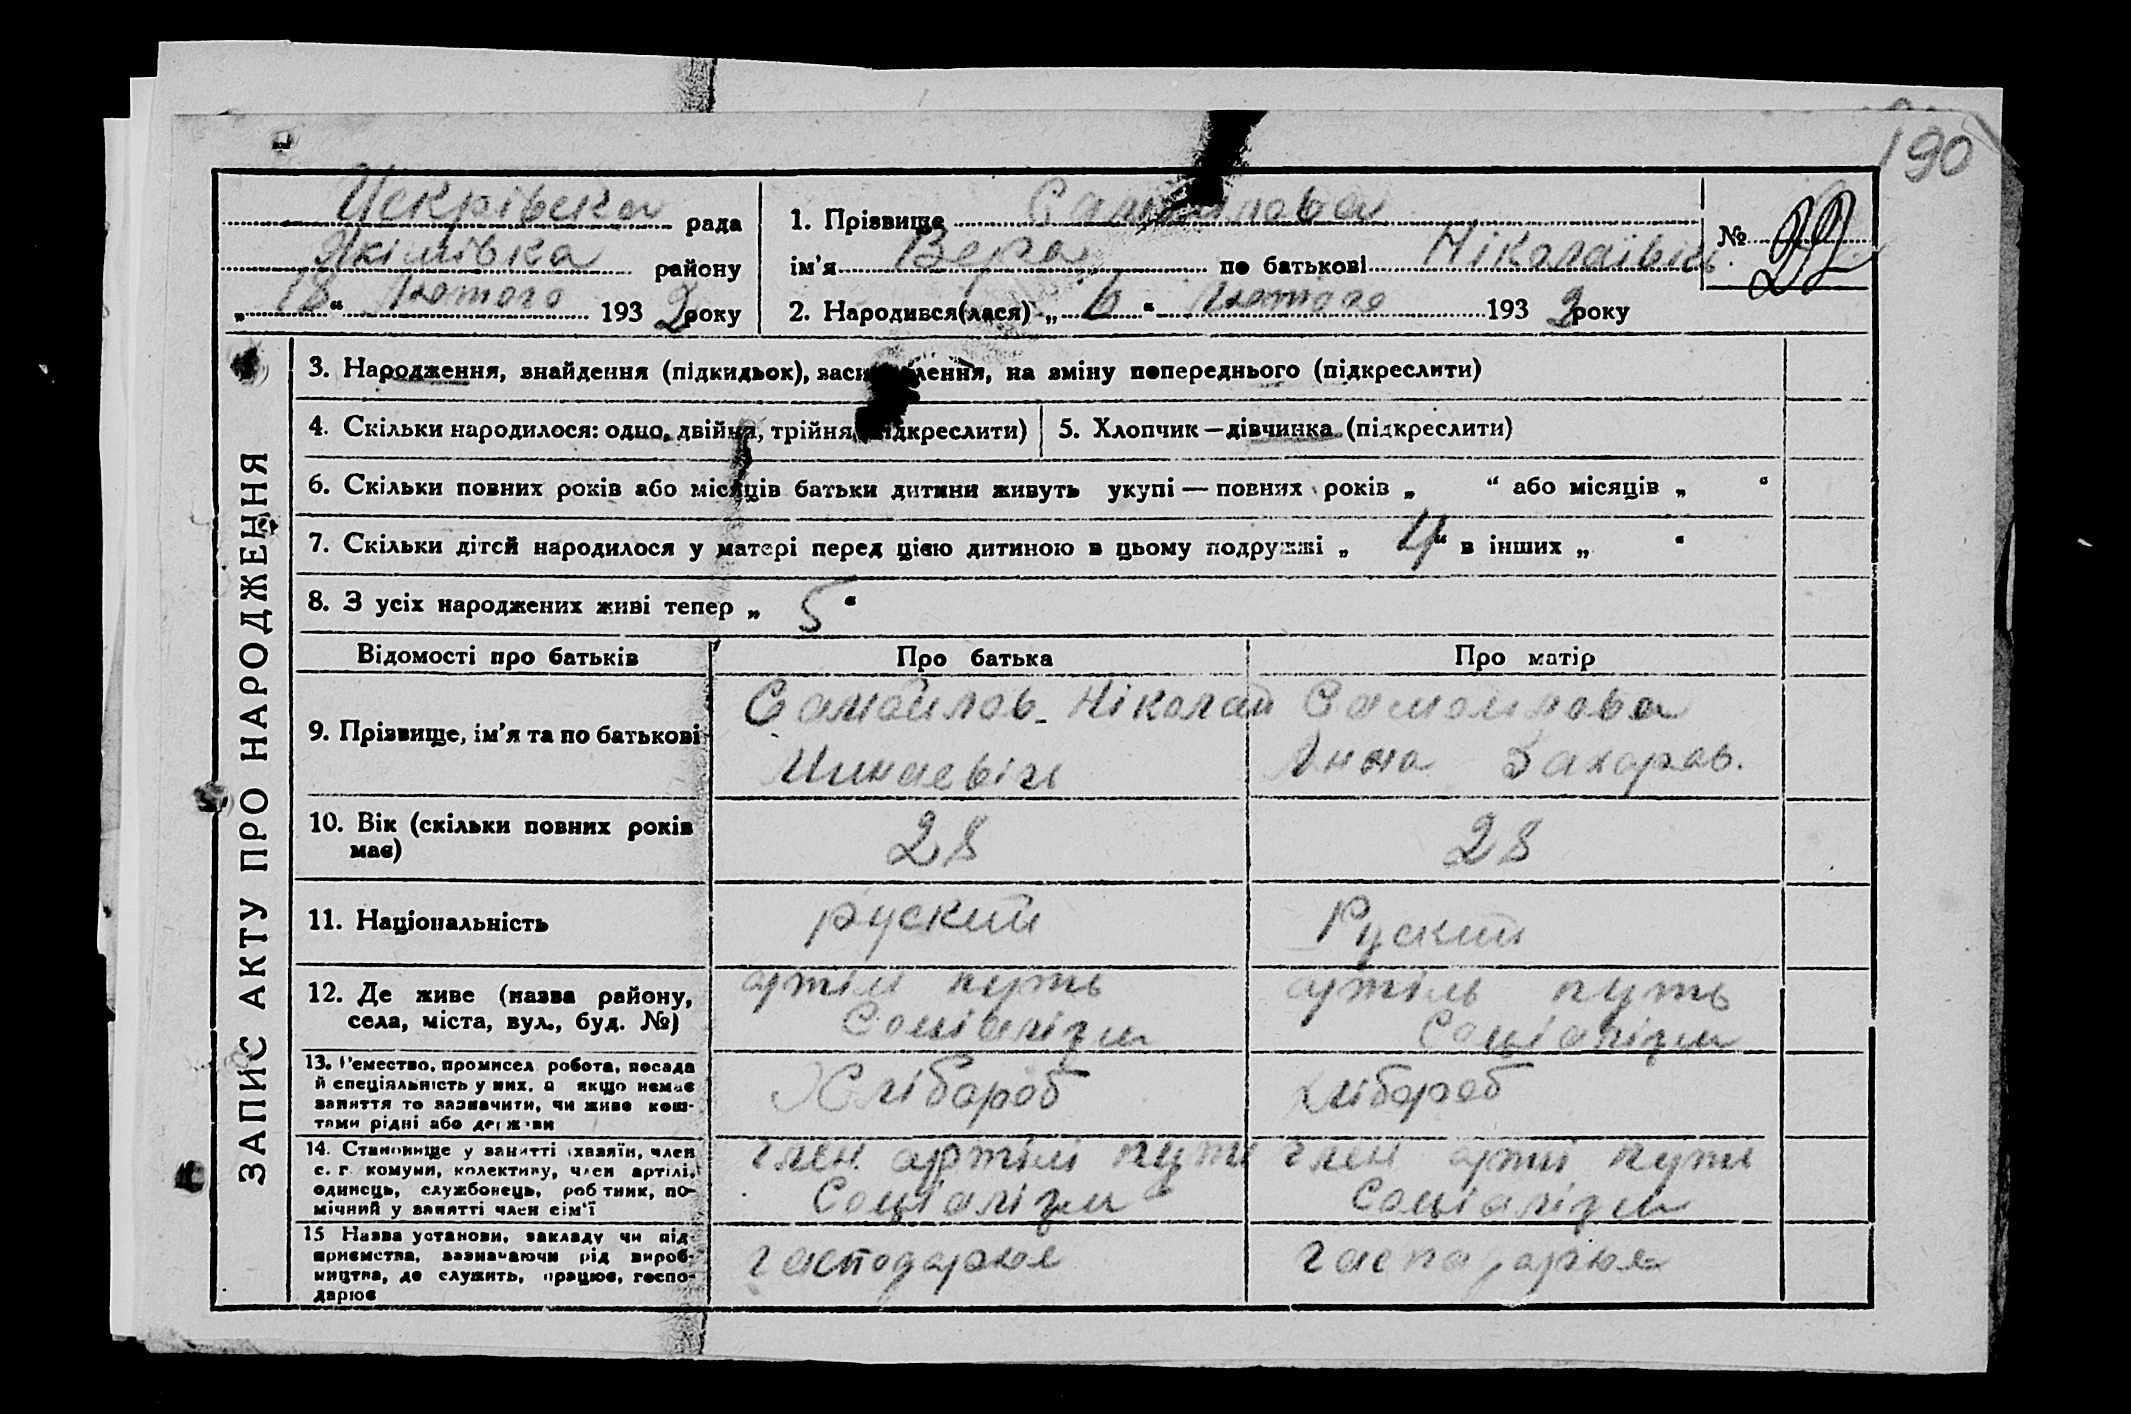 190
Искрівска рада
Якімівка району
„ 18 “ лютого 1932 року
1. Прізвище Самойлова
ім'я Вера по батькові Ніколаївн
2. Народився(лася) „ 6 “ лютого 1932 року
№ 22
ЗАПИС АКТУ ПРО НАРОДЖЕННЯ
3. Народження, знайдення (підкидьок), засиновлення, на зміну попереднього (підкреслити)
4. Скільки народилося: одно, двійня, трійня, (підкреслити)
5. Хлопчик — дівчинка (підкреслити)
6. Скільки повних років або місяців батьки дитини живуть укупі — повних років „ “ або місяців „ “
7. Скільки дітей народилося у матері перед цією дитиною в цьому подружжі „ 4 “ в інших „ “
8. З усіх народжених живі тепер „ 5 “
Відомості про батьків
Про батька
Про матір
9. Прізвище, ім'я та по батькові
Самойлов Ніколай
Минаевіч
Самоилова
Анна Захаров.
10. Вік (скільки повних років
має)
28
28
11. Національність
руский
Руский
12. Де живе (назва району,
села, міста, вул., буд. №)
артіли путь
Соціалізм
артіль путь
Соціалізм
13. Ремество, промисел робота, посада
й спеціяльність у них, а якщо немає
заняття то зазначити, чи живе кош-
тами рідні або держави
Хлібароб
хлібароб
14. Становище у занятті (хазяїн, член
с. г. комуни, колективу, член артілі,
одинець, службовець, робітник, по-
мічний у занятті член сім'ї
член артілі путь
Соціалізм
член арти путь
Соціалізм
15 Назва установи, закладу чи під
приємства, зазначаючи рід вироб-
ництва, де служить, працює, госпо-
дарює
господарює
гаспадарюя